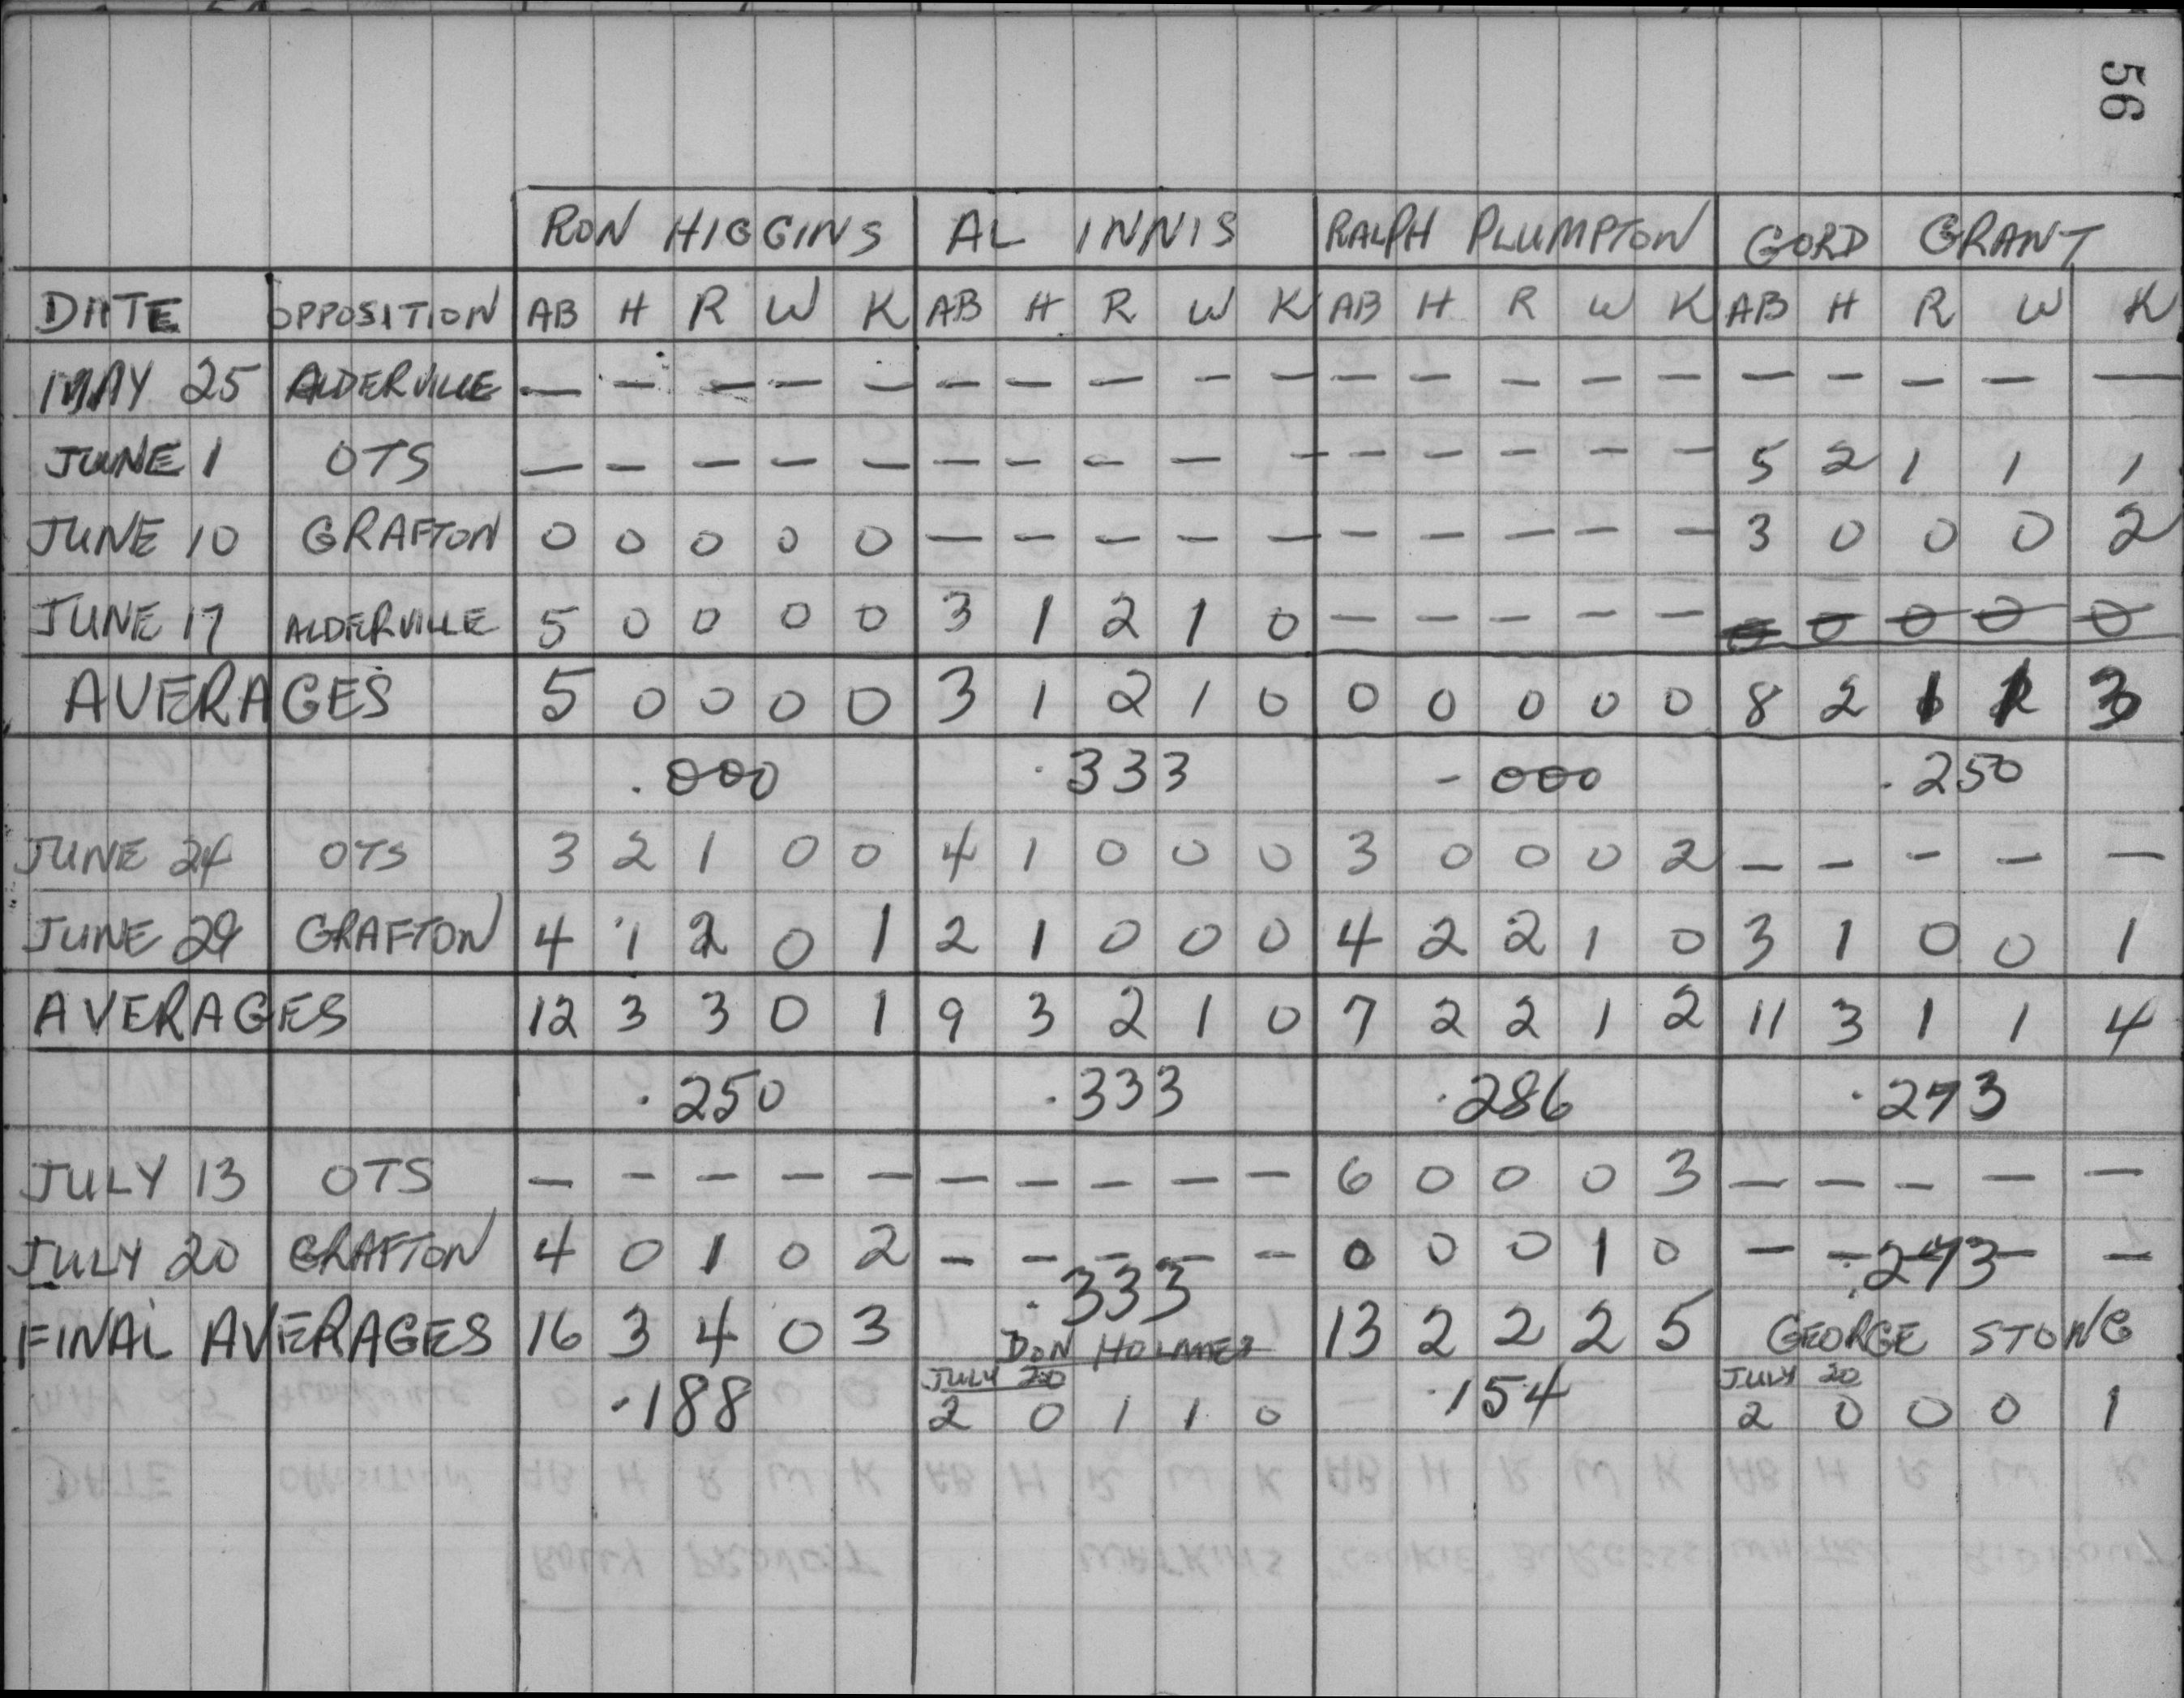 56
RON HIGGINS AL INNIS RALPH PLUMPTON GORD GRANT
DATE OPPOSITION AB H R W K AB H R W K AB H R W K AB H R W K
MAY 25 ALDERVILLE — — — — — — — — — — — — — — — — — — — —
JUNE 1 OTS — — — — — — — — — — — — — — — 5 2 1 1 1
JUNE 10 GRAFTON 0 0 0 0 0 — — — — — — — — — — 3 0 0 0 2
JUNE 17 ALDERVILLE 5 0 0 0 0 3 1 2 1 0 — — — — — 0 0 0 0 0
AVERAGES 5 0 0 0 0 3 1 2 1 0 0 0 0 0 0 8 2 1 1 3
.000 .333 -000 .250
JUNE 24 OTS 3 2 1 0 0 4 1 0 0 0 3 0 0 0 2 — — — — —
JUNE 29 GRAFTON 4 1 2 0 1 2 1 0 0 0 4 2 2 1 0 3 1 0 0 1
AVERAGES 12 3 3 0 1 9 3 2 1 0 7 2 2 1 2 11 3 1 1 4
.250 .333 .286 .273
JULY 13 OTS — — — — — — — — — — 6 0 0 0 3 — — — — —
JULY 20 GRAFTON 4 0 1 0 2 — — — — — 0 0 0 1 0 — — — — —
.333 .273
FINAL AVERAGES 16 3 4 0 3 DON HOLMES 13 2 2 2 5 GEORGE STONE
JULY 20 JULY 20
.188 2 0 1 1 0 .154 2 0 0 0 1